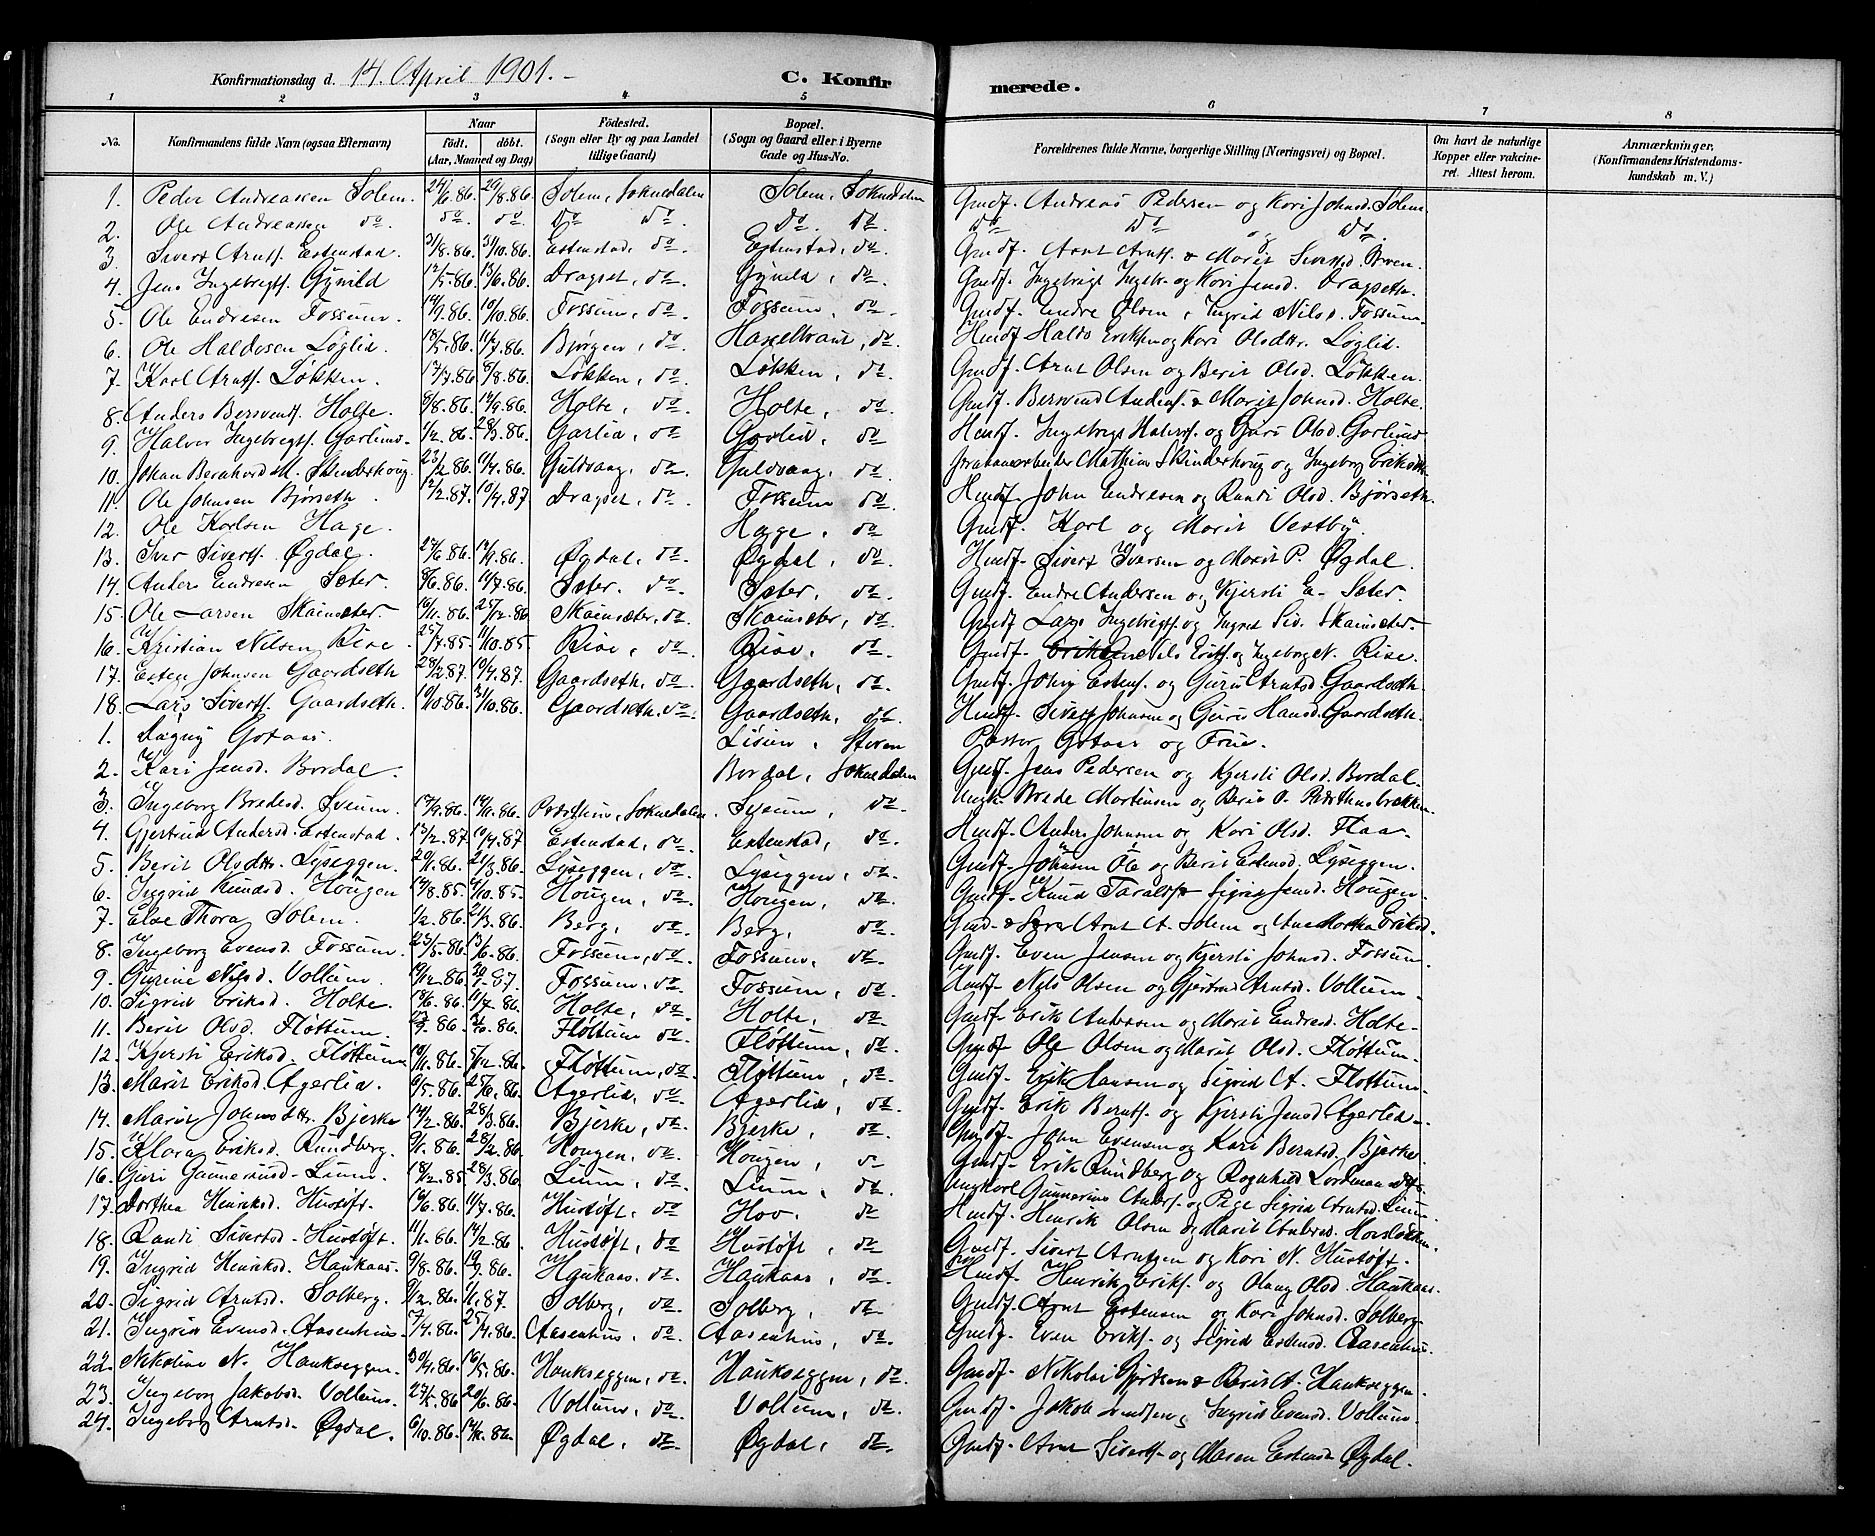 Konfirmationsdag d. 14. April 1901. C. Konfir merede.
1 2 3 4 5 6 7 8
No. Konfirmandens fulde Navn (ogsaa Efternavn) Naar født. døbt. (Aar, Maaned og Dag) Fødested. (Sogn eller By og paa Landet tillige Gaard) Bopæl. (Sogn og Gaard eller i Byerne Gade og Hus-No.) Forældrenes fulde Navne, borgerlige Stilling (Næringsvei) og Bopæl. Om havt de naturlige Kopper eller vakcineret. Attest herom. Anmærkninger, (Konfirmandens Kristendomskundskab m. V.)
1. Peder Andreassen Solem. 24/6.86. 29/8.86. Solem, Soknedalen Solem, Soknedalen Gmdf. Andreas Pedersen og Kari Johnsd. Solem.
2. Ole Andreassen do do do do do do do do do do
3. Sivert Arntsf. Estenstad. 31/8.86. 31/10.86. Estenstad, do Estenstad, do Gmdf. Arnt Arntsf. & Marit Sivertsd.
4. Jens Ingebrigtsf. Gynild 12/5.86. 13/6.86. Dragset, do Gynild, do Gmdf. Ingebrigt og Kari Jensd. Dragseth.
5. Ole Endresen Fossum. 14/9.86. 10/10.86. Fossum, do Fossum, do Gmdf. Endre Olsen, Ingrid Nilsd. Fossum.
6. Ole Haldosen Løglid. 18/5.86. 11/7.86. Bjørgen, do do. Hmdf. Haldo Eriksen og Kari Olsdtr. Løglid.
7. Karl Arntsf. Løkken. 17/7.86 8/8.86. Løkken, do Løkken, do Gmdf. Arnt Olsen og Berit Olsd. Løkken.
8. Anders Bersvendsf. Holte. 8/8.86. 19/9.86. Holte, do Holte, do Gmdf. Bersvend Andersf. & Marit Johnsd. Holte.
9. Halvor Ingebrigtsf. Garlund. 1/2.86. 28/3.86. Garlid, do Garlid, do Hmdf. Ingebrigt Halvorsf. og Guri Olsd. Garlund
10. Johan Bernhard M. Skinderhoug 23/2.86. 11/4.86. Guldvaag, do Guldvaag, do Mathias Skinderhoug og Ingeborg Eriksdtr.
11. Ole Johnsen Bjørseth. 12/2.87. 10/4.87 Dragset, do Fossum do Hmdf. John Endresen og Randi Olsd. Bjørseth.
12. Ole Karlsen Hage. Hage, do Gmdf. Karl og Marit Vestby.
13. Ivar Sivertsf. Øgdal. 27/6.86. 19/9.86. Øgdal, do Øgdal, do Hmdf. Sivert Ivarsen og Marit P. Øgdal.
14. Anders Endresen Sæter. 8/6.86. 11/7.86. Sæter. do Sæter, do Gmdf. Endre Andersen og Kjersti E. Sæter.
15. Ole Larsen Skainsæter. 16/11.86. 25/12.86 Skainsæter, do Skainsæter, do Gmdf. Lars Ingebrigtsf. og Ingrid Siv. Skainsæter.
16. Kristian Nilsen Rise. 25/7.85. 11/10.85. Rise, do Rise, do Gmdf. Nils Eriksf. og Ingeborg N. Rise.
17. Esten Johnsen Gaardseth 28/2.87. 10/4.87. Gaardseth, do Gaardseth, do Gmdf. John Estensf. og Guru Arntsd. Gaardseth.
18. Lars Sivertsf. Gaardseth. 10/10.86. 31/10.86. Gaardseth, do. Gaardseth, do. Hmdf. Sivert Johnsen og Guru Hansd. Gaardseth.
1. Dagny Gotaas. Støren Pastor Gotaas og Frue.
2. Kari Jensd. Bordal. Bordal, Soknedalen Gmdf. Jens Pedersen og Kjersti Olsd. Bordal.
3. Ingeborg Bredesd. Sveum. 17/9.86. 14/11.86. Soknedalen. do Ungk. Brede Mortensen og
4. Gjertrud Andersd. Estenstad. 12/2.87 10/4.87 Estenstad, do Estenstad, do Hmdf. Anders Johnsen og Kari Olsd. Flaa.
5. Berit Olsdtr. Lyseggen. 29/1.86. 21/3.86. Lyseggen, do Lyseggen, do Gmdf. Johnsen Ole og Berit Estensd. Lyseggen.
6. Ingrid Knudsd. Hougen 14/8.85. 4/10.85. Hougen, do Hougen, do Gmdf. Knud og Sigrid Jensd. Hougen.
7. Else Thora Solem. 1/2.86. 21/3.86. Berg, do Berg, do Arnt A. Solem og Ane Martha Eriksd.
8. Ingeborg Evensd. Fossum. 23/5.86. 13/6.86. Fossum, do Fossum, do Gmdf. Even Jensen og Kjersti Johnsd. Fossum.
9. Gurine Nilsd. Vollum. Fossum, do Fossum, do Hmdf. Nils Olsen og Gjertrud Arntsd. Vollum.
10. Sigrid Eriksd. Holte. 14/6.86. 11/7.86. Holte, do Holte, do Gmdf. Erik Andersen og Marit Endresd. Holte.
11. Berit Olsd. Fløttum. Fløttum do Fløttum, do Gmdf. Ole Olsen og Marit Olsd. Fløttum.
12. Kjersti Eriksd. Fløttum 5/12.86. Fløttum, do Fløttum, do Gmdf. Erik Hansen og Sigrid A. Fløttum.
13. Marit Eriksd. Agerlid. 9/5.86. 25/6.86. Agerlid, do Agerlid, do Gmdf. Erik Berntsf. og Kjersti Jensd. Agerlid.
14. Marit Johnsdtr. Bjerke 14/2.86. 28/3.86. Bjerke, do Bjerke, do Gmdf. John Evensen og Kari Berntsd. Bjerke.
15. Klara Eriksd. Rundberg. 9/1.86. 28/2.86 Hougen, do Hougen, do Gmdf. Erik Rundberg og Ragnhild
16. Guri Gunnerusd. Lium. 18/2.85 28/3.86. Lium, do Lium, do Ungkarl Gunnerius Andersf. og Pige Sigrid Arntsd. Lium.
17. Dorthea Henriksd. Hustøft. 16/6.86. 11/7.86. Hustøft, do Hov. do Hmdf. Henrik Olsen og Marit Andersd.
18. Randi Sivertsd. Hustøft. 11/1.86. 14/2.86. Hustøft, do Hustøft, do Gmdf. Sivert Arntsen og Kari N. Hustøft.
19. Ingrid Henriksd. Haukaas. 9/8.86. 19/9.86. Haukaas. do Haukaas, do Hmdf. Henrik Eriksf. og Olaug Olsd. Haukaas.
20. Sigrid Arntsd. Solberg. 9/12.86. 1/1.87. Solberg, do Solberg, do Gmdf. Arnt Estensen og Kari Johnsd. Solberg.
21. Ingrid Evensd. Aasenhus. 7/4.86. 25/4.86. Aasenhus, do Aasenhus, do Gmdf. Even Eriksf. og Sigrid Estensd. Aasenhus.
22. Nikoline N. Haukseggen. 30/4.86. 16/5.86. Haukseggen, do Haukseggen, do Gmdf. Nikolai & Berit A. Haukseggen.
23. Ingeborg Jakobsd. Vollum. 27/5.86 20/6.86. Vollum, do Vollum, do Gmdf. Jakob og Ingrid Evensd. Vollum.
24. Ingeborg Arntsd. Øgdal. 6/10.86. 14/11.86. Øgdal, do Øgdal, do Gmdf. Arnt Sivertsf. og Maren Estensd. Øgdal.